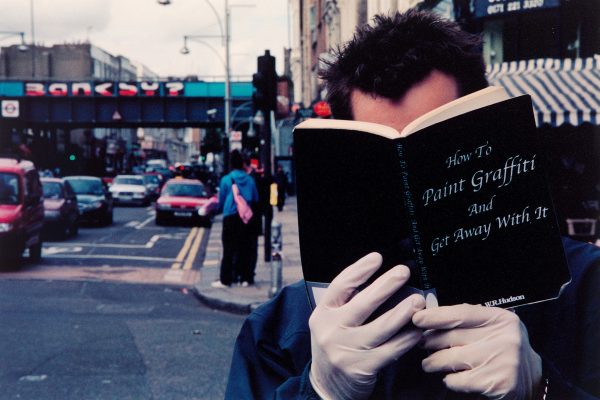 0171 221
BANKSY?
How To
Paint Graffiti
And
Get Away With It
How To Paint Graffiti And Get Away With It
W.R.Hudson